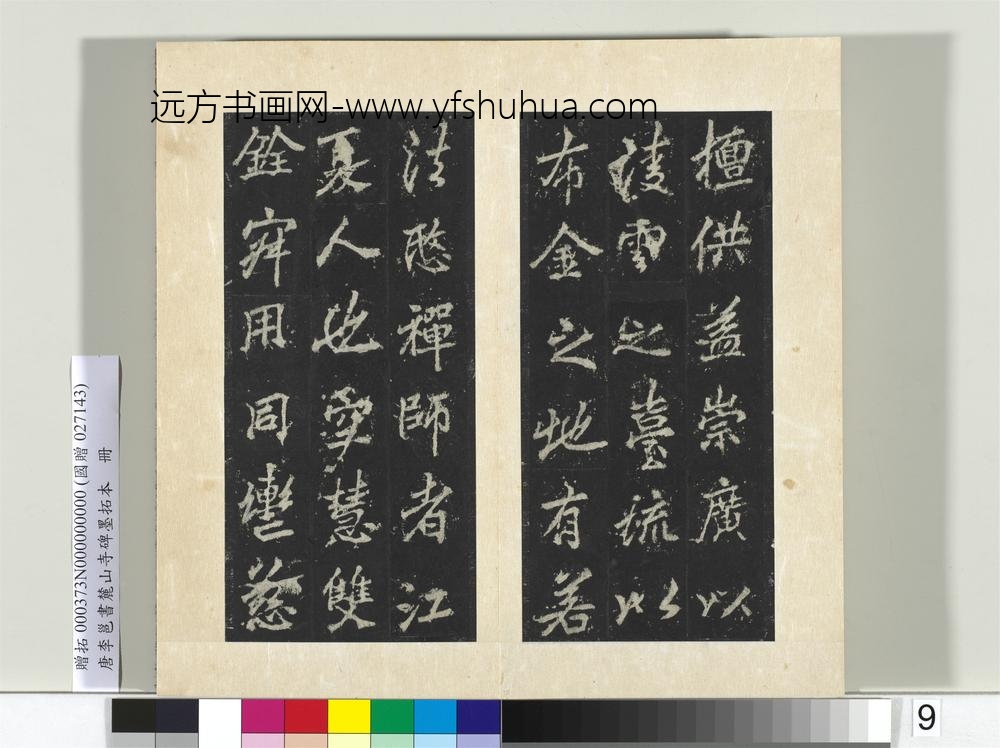 远方书画网-www.yfshuhua.com
檀供益崇廣以
淩雲之臺疏以
布金之地有若
法愍禪師者江
夏人也慧雙
銓寂用同轡慈
贈拓 000373N000000000 (國贈 027143)
唐李邕書麓山寺碑墨拓本 冊
9